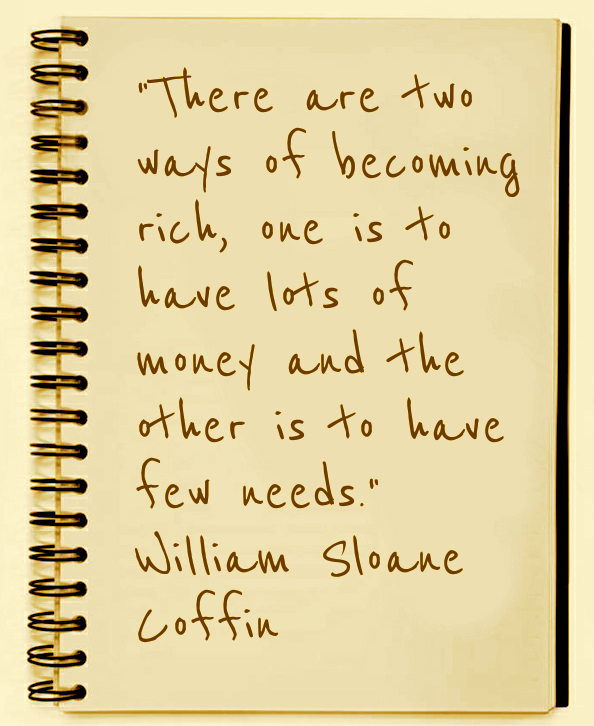 "There are two
ways of becoming
rich, one is to
have lots of
money and the
other is to have
few needs."
William Sloane
Coffin